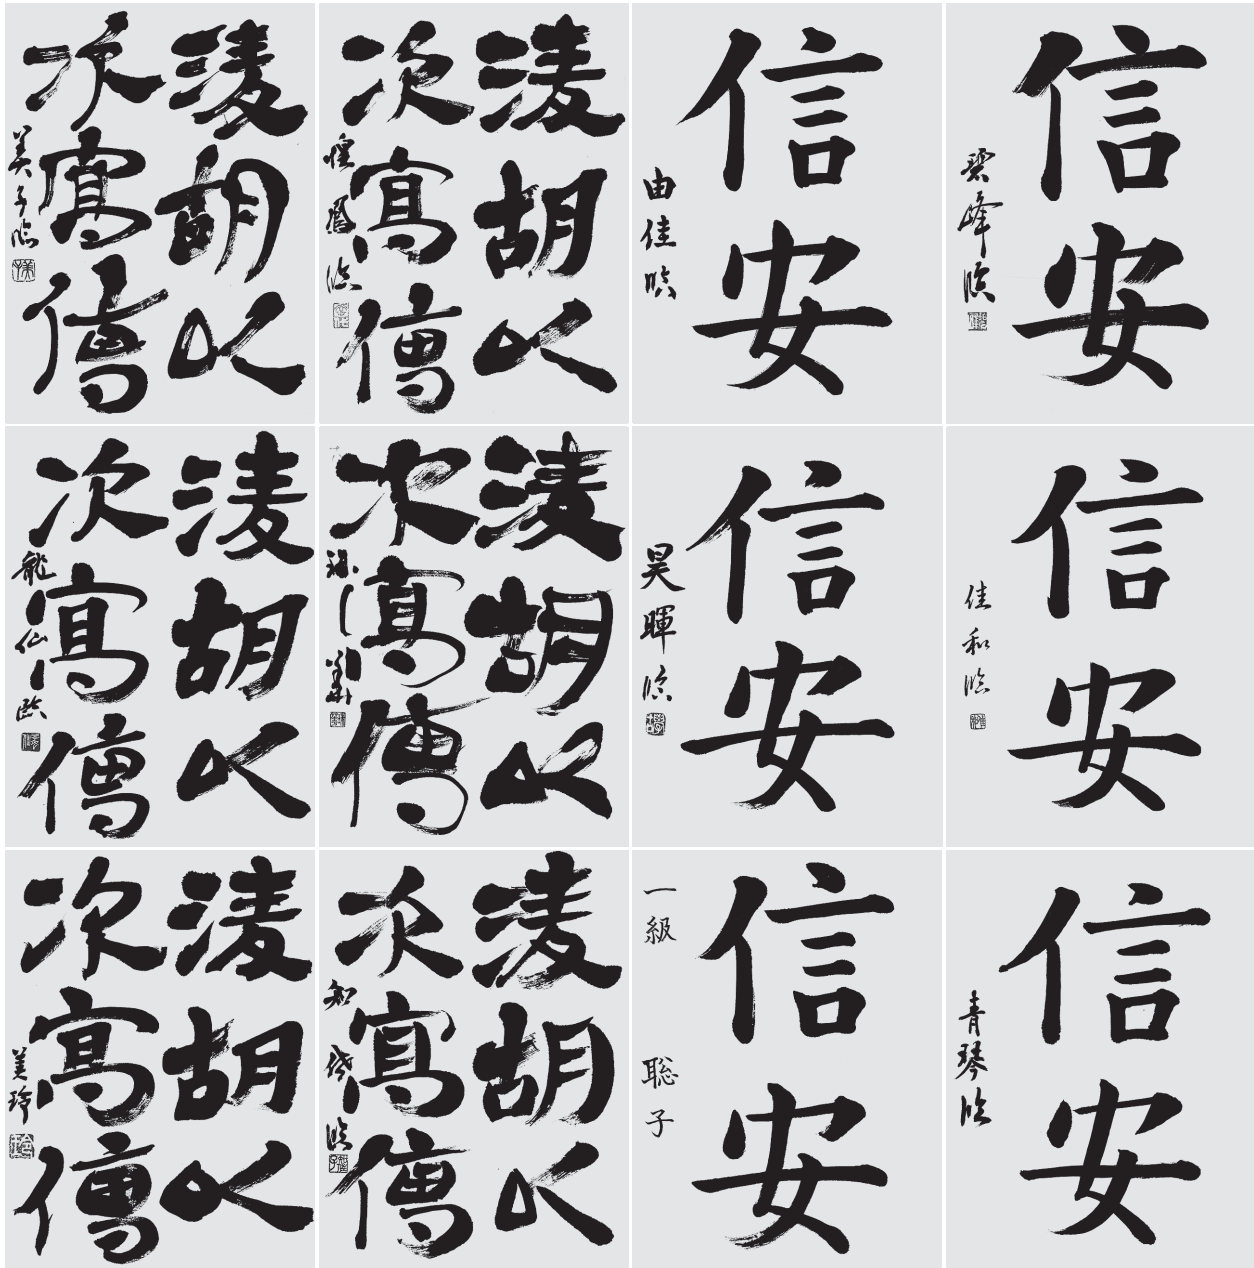 淩胡以
次寫傳
美子臨
淩胡以
次寫傳
煌鳳臨
信安
由佳臨
信安
碧峰臨
淩胡以
次寫傳
龍仙臨
淩胡以
次寫傳
信安
昊暉臨
信安
佳和臨
淩胡以
次寫傳
美玲
淩胡以
次寫傳
信安
一級 聡子
信安
青琴臨